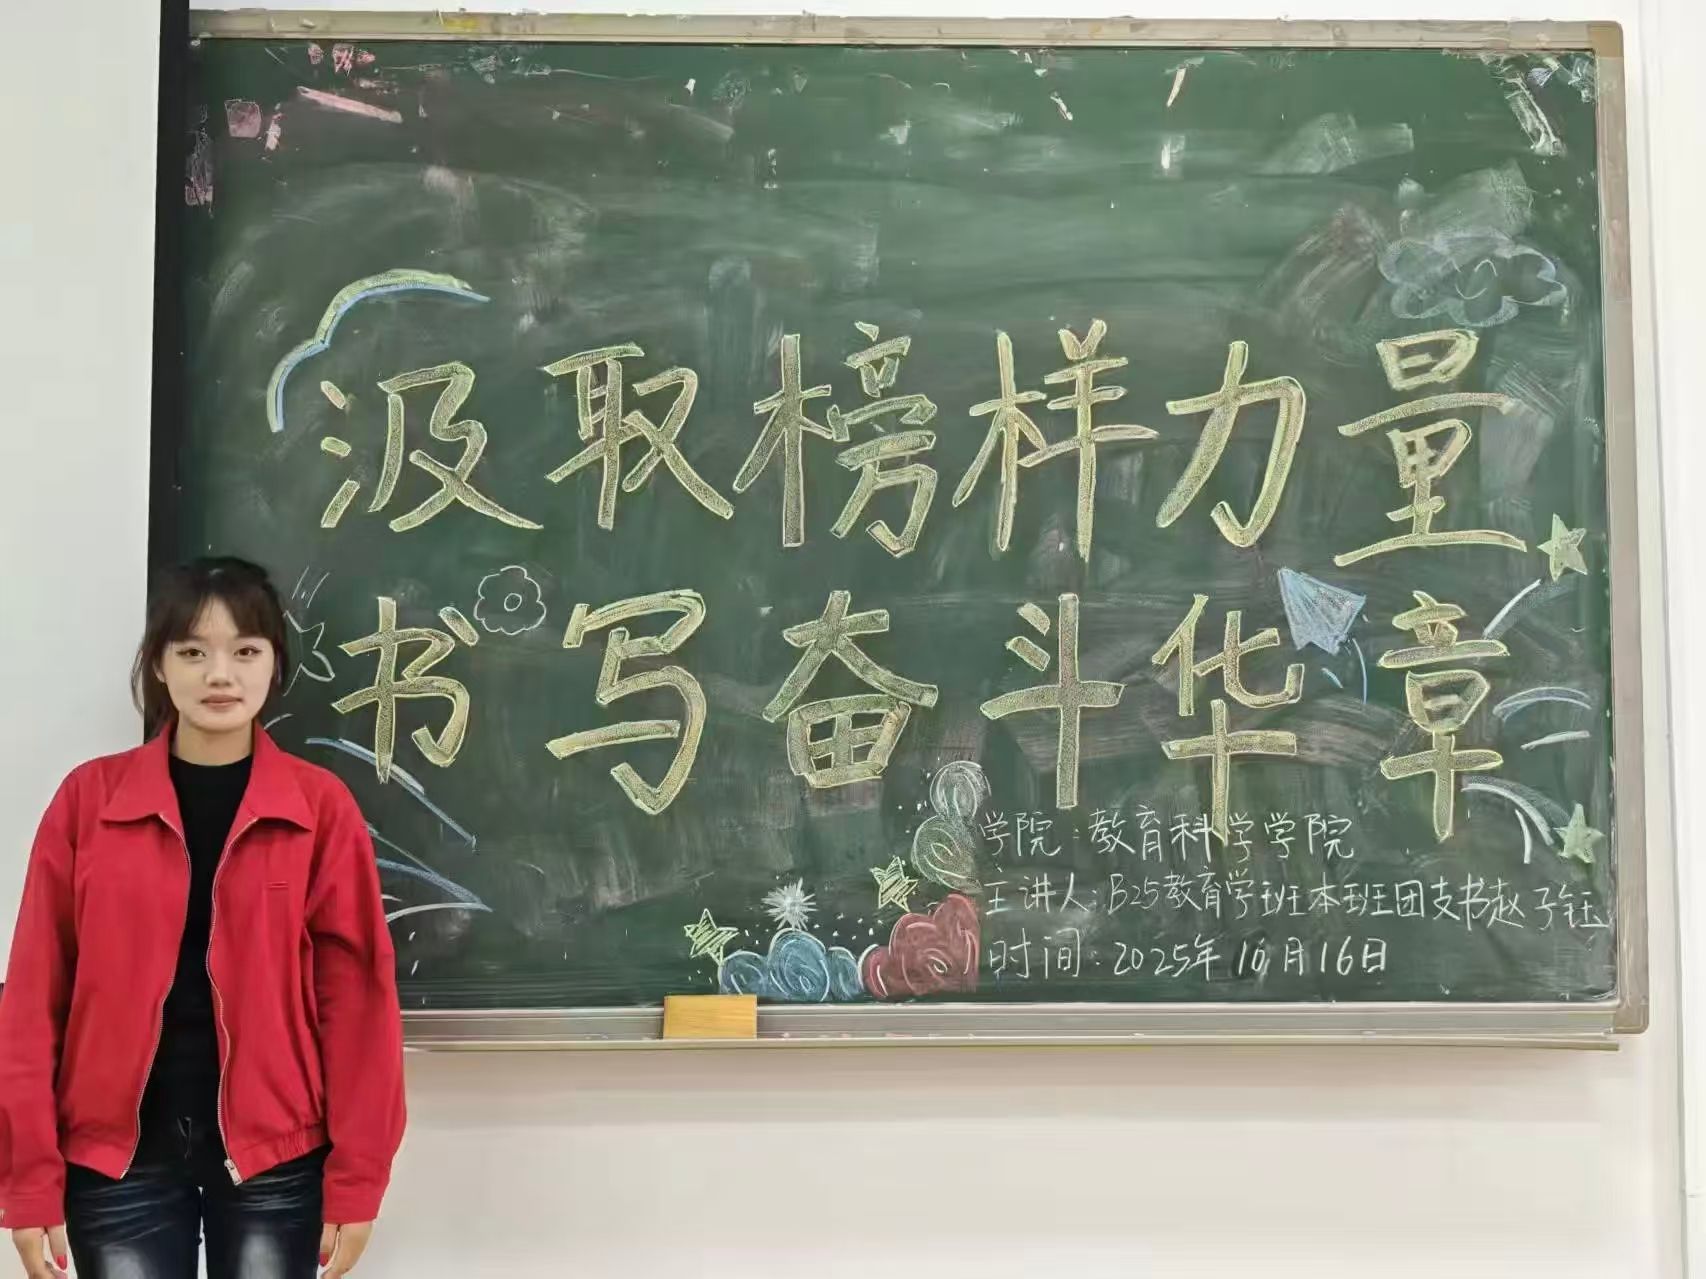 汲取榜样力量
书写奋斗华章
学院:教育科学学院
主讲人:B25教育学班本班团支书赵子钰
时间:2025年10月16日